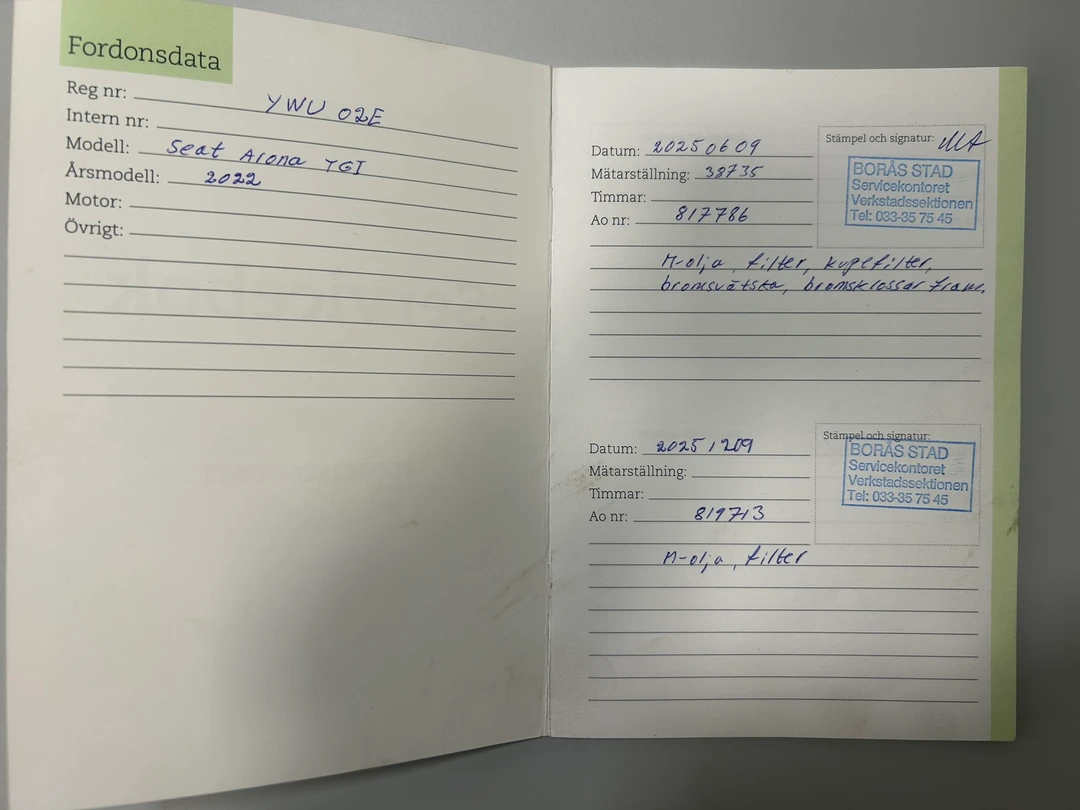 Fordonsdata
Reg nr: YWU 02E
Intern nr:
Modell: Seat Arona TGI
Årsmodell: 2022
Motor:
Övrigt:
Datum: 20250609
Mätarställning: 38735
Timmar:
Ao nr: 817786
Stämpel och signatur:
BORÅS STAD
Servicekontoret
Verkstadssektionen
Tel: 033-35 75 45
M-olja, filter, kupefilter,
bromsvätska, bromsklossar fram.
Datum: 20251209
Mätarställning:
Timmar:
Ao nr: 819713
Stämpel och signatur:
BORÅS STAD
Servicekontoret
Verkstadssektionen
Tel: 033-35 75 45
M-olja, filter